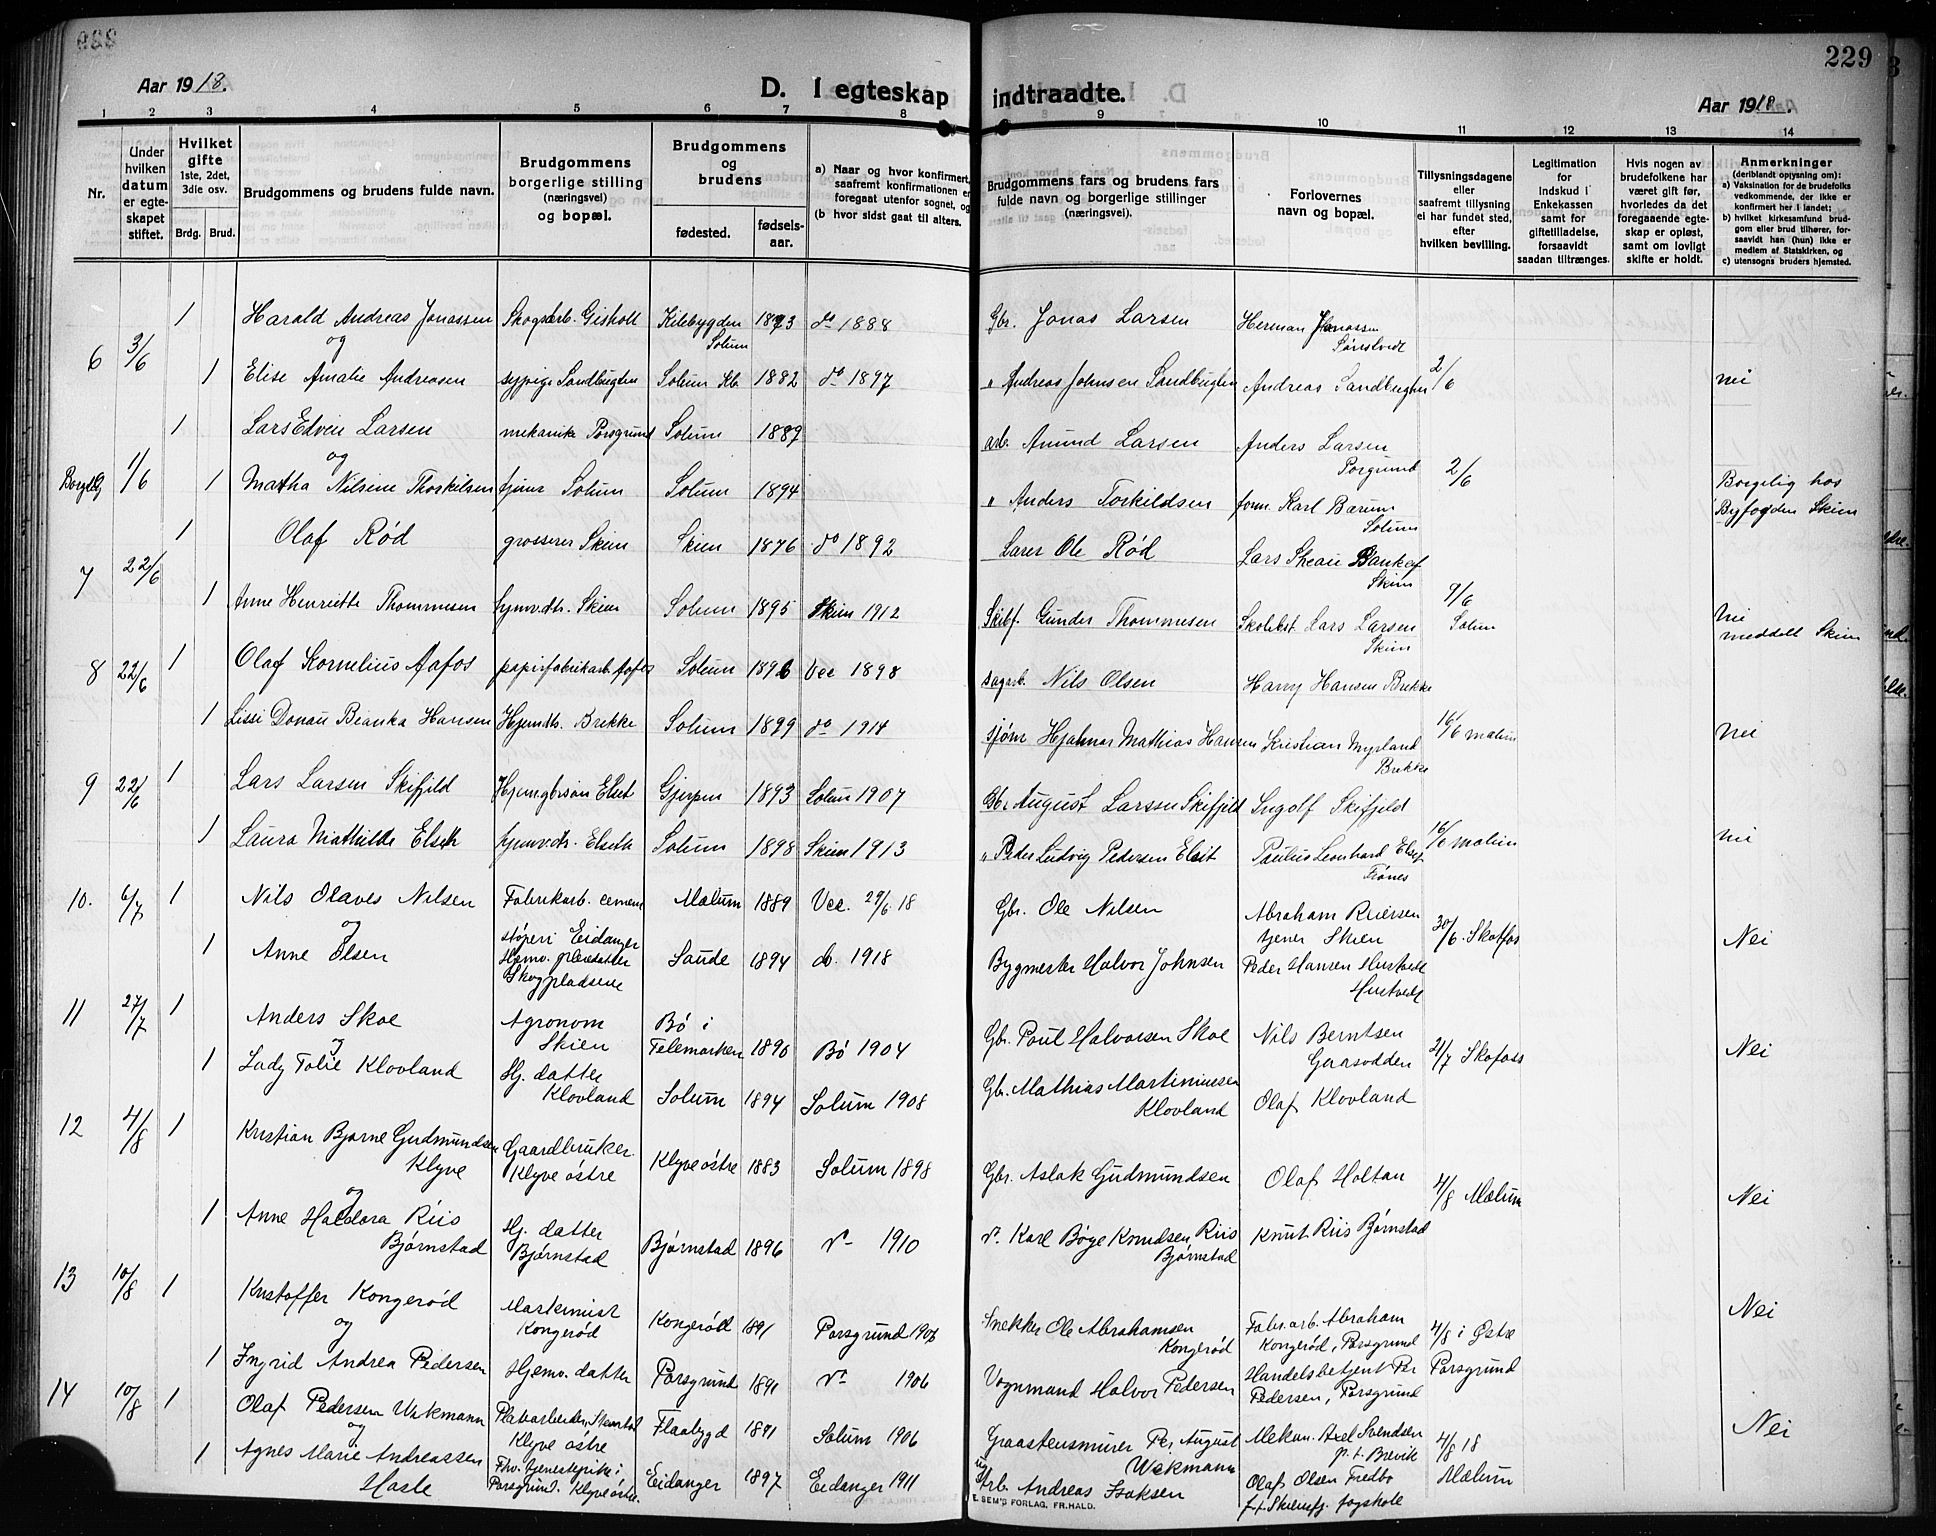 229
Aar 1918.
D. I egteskap indtraadte.
Aar 1918.
1 2 3 4 5 6 7 8 9 10 11 12 13 14
Nr.
Under hvilken datum er egteskapet stiftet.
Hvilket gifte 1ste, 2det, 3die osv.
Brdg. Brud.
Brudgommens og brudens fulde navn.
Brudgommens borgerlige stilling (næringsvei) og bopæl.
Brudgommens og brudens
fødested. fødselsaar.
a) Naar og hvor konfirmert, saafremt konfirmationen er foregaat utenfor sognet, og
(b hvor sidst gaat til alters.
Brudgommens fars og brudens fars fulde navn og borgerlige stillinger (næringsvei).
Forlovernes navn og bopæl.
Tillysningsdagene eller saafremt tillysning ei har fundet sted, efter hvilken bevilling.
Legitimation for Indskud i Enkekassen samt for giftetilladelse, forsaavidt saadan tiltrænges.
Hvis nogen av brudefolkene har været gift før, hvorledes da det foregaaende egteskap er opløst, samt om lovligt skifte er holdt.
Anmerkninger (deriblandt opysning om):
a) Vaksination for de brudefolks vedkommende, der ikke er konfirmert her i landet;
b) hvilket kirkesamfund brudgom eller brud tilhører, forsaavidt han (hun) ikke er medlem af Statskirken, og
c) utensogns bruders hjemsted.
6 3/6 1 Harald Andreas Jonassen Skogsarb. Gisholt Kilebygden Solum 1873 do 1888 Gbr. Jonas Larsen Herman Jonassen
og
1 Elise Amalie Andreasen sypige Sandbugten Solum Kb 1882 do 1897 " Andreas Johnsen Sandbugten Andreas Sandbugten 2/6 nei
Borgelig 1/6 1 Lars Edvin Larsen mekanike Porsgrund Solum 1889 arb. Amund Larsen Anders Larsen Porgrund
og
1 Matha Nilsine Thorkilsen Solum Solum 1894 " Anders Torkildsen form. Karl Bærum Solum 2/6 Borgelig hos Byfogden Skien
7 22/6 1 Olaf Rød grosserer Skien Skien 1876 do 1892 Lærer Ole Rød Lars Skien
1 Anne Henriette Thommesen hjemv.dtr. Skien Solum 1895 Skien 1912 Skibf. Gunder Thommesen Skolebst. Lars Larsen Skien 9/6 Solum nei meddelt Skien
8 22/6 1 Olaf Kornelius Aafos papirfabrikarb. Aafos Solum 1896 Vee 1898 sagarb. Nils Olsen Harry Hansen Brekke
1 Lissi Donau Bianka Hansen Hjemdtr. Brekke Solum 1899 do 1914 sjøm Hjalmar Mathias Hansen Kristian Myrland Brekke 16/6 mælum nei
9 22/6 1 Lars Larsen Skifjeld Elset Gjerpen 1893 Solum 1907 Gbr. August Larsen Skifjeld Ingolf Skifjeld
1 Laura Mathilde Elseth hjemv.dtr. Elseth Solum 1898 Skien 1913 " Peder Ludvig Pedersen Elset Paulus Leonhard 16/6 mælum nei
10. 6/7 1 Nils Olaves Nilsen Fabrikarb. cement støperi Eidanger Mælum 1889 Vee. 29/6 18 Gbr. Ole Nilsen Abraham Reiersen Skien
og
1 Anne Olsen Hjemv. Skogpladsene Saude 1894 do. 1918 Bygmester Halvor Johnsen Peder Hansen Hustvedt Hustvedt 30/6. Skotfos Nei
11 27/7 1 Anders Skoe Agronom Skien Bø i Telemarken 1890 Bø 1904 Gbr. Poul Halvorsen Skoe Nils Berntsen Gaasodden
og
1 Lady Tolie Klovland Hj. datter Klovland Solum 1894 Solum 1908 Gbr. Mathias Martiniussen Klovland Olaf Klovland 21/7 Skofoss Nei
12 4/8 1 Kristian Bjarne Gudmundsen Klyve Gaardbruker Klyve østre Klyve østre 1883 Solum 1898 Gbr. Aslak Gudmundsen Olaf Holtan
og
1 Anne Haldora Riis Bjørnstad Hj. datter Bjørnstad Bjørnstad 1896 1910 Karl Bøge Knudsen Riis Bjørnstad Knut Riis Bjørnstad 4/8 Mælum Nei
13 10/8 1 Kristoffer Kongerød Kongerød Kongerød 1891 Porsgrund 1906 Snekker Ole Abrahamsen Kongerød Fabr.arb. Abraham Kongerød, Porsgrund
og
1 Ingrid Andrea Pedersen Hjemv. datter Porsgrund 1891 1906 Vognmand Halvor Pedersen Handelsbetjent Per Pedersen, Porsgrund 4/8 i Østre Porsgrund Nei
14 10/8 1 Olaf Pedersen Wekmann Klyve østre Flaabygd 1891 Solum 1906 Graastensmurer Per August Wekmann Mekan. Axel Svendsen p. t. Brevik
og
1 Agnes Marie Andreassen Hasle Fhv. tjenestepike i Porsgrund. Klyve østre. Eidanger 1897 Eidanger 1911 Arb. Andreas Isaksen Olaf Olsen Fredbo 4/8 18 Mælum Nei
E. SEM'S FORLAG, FR.HALD.